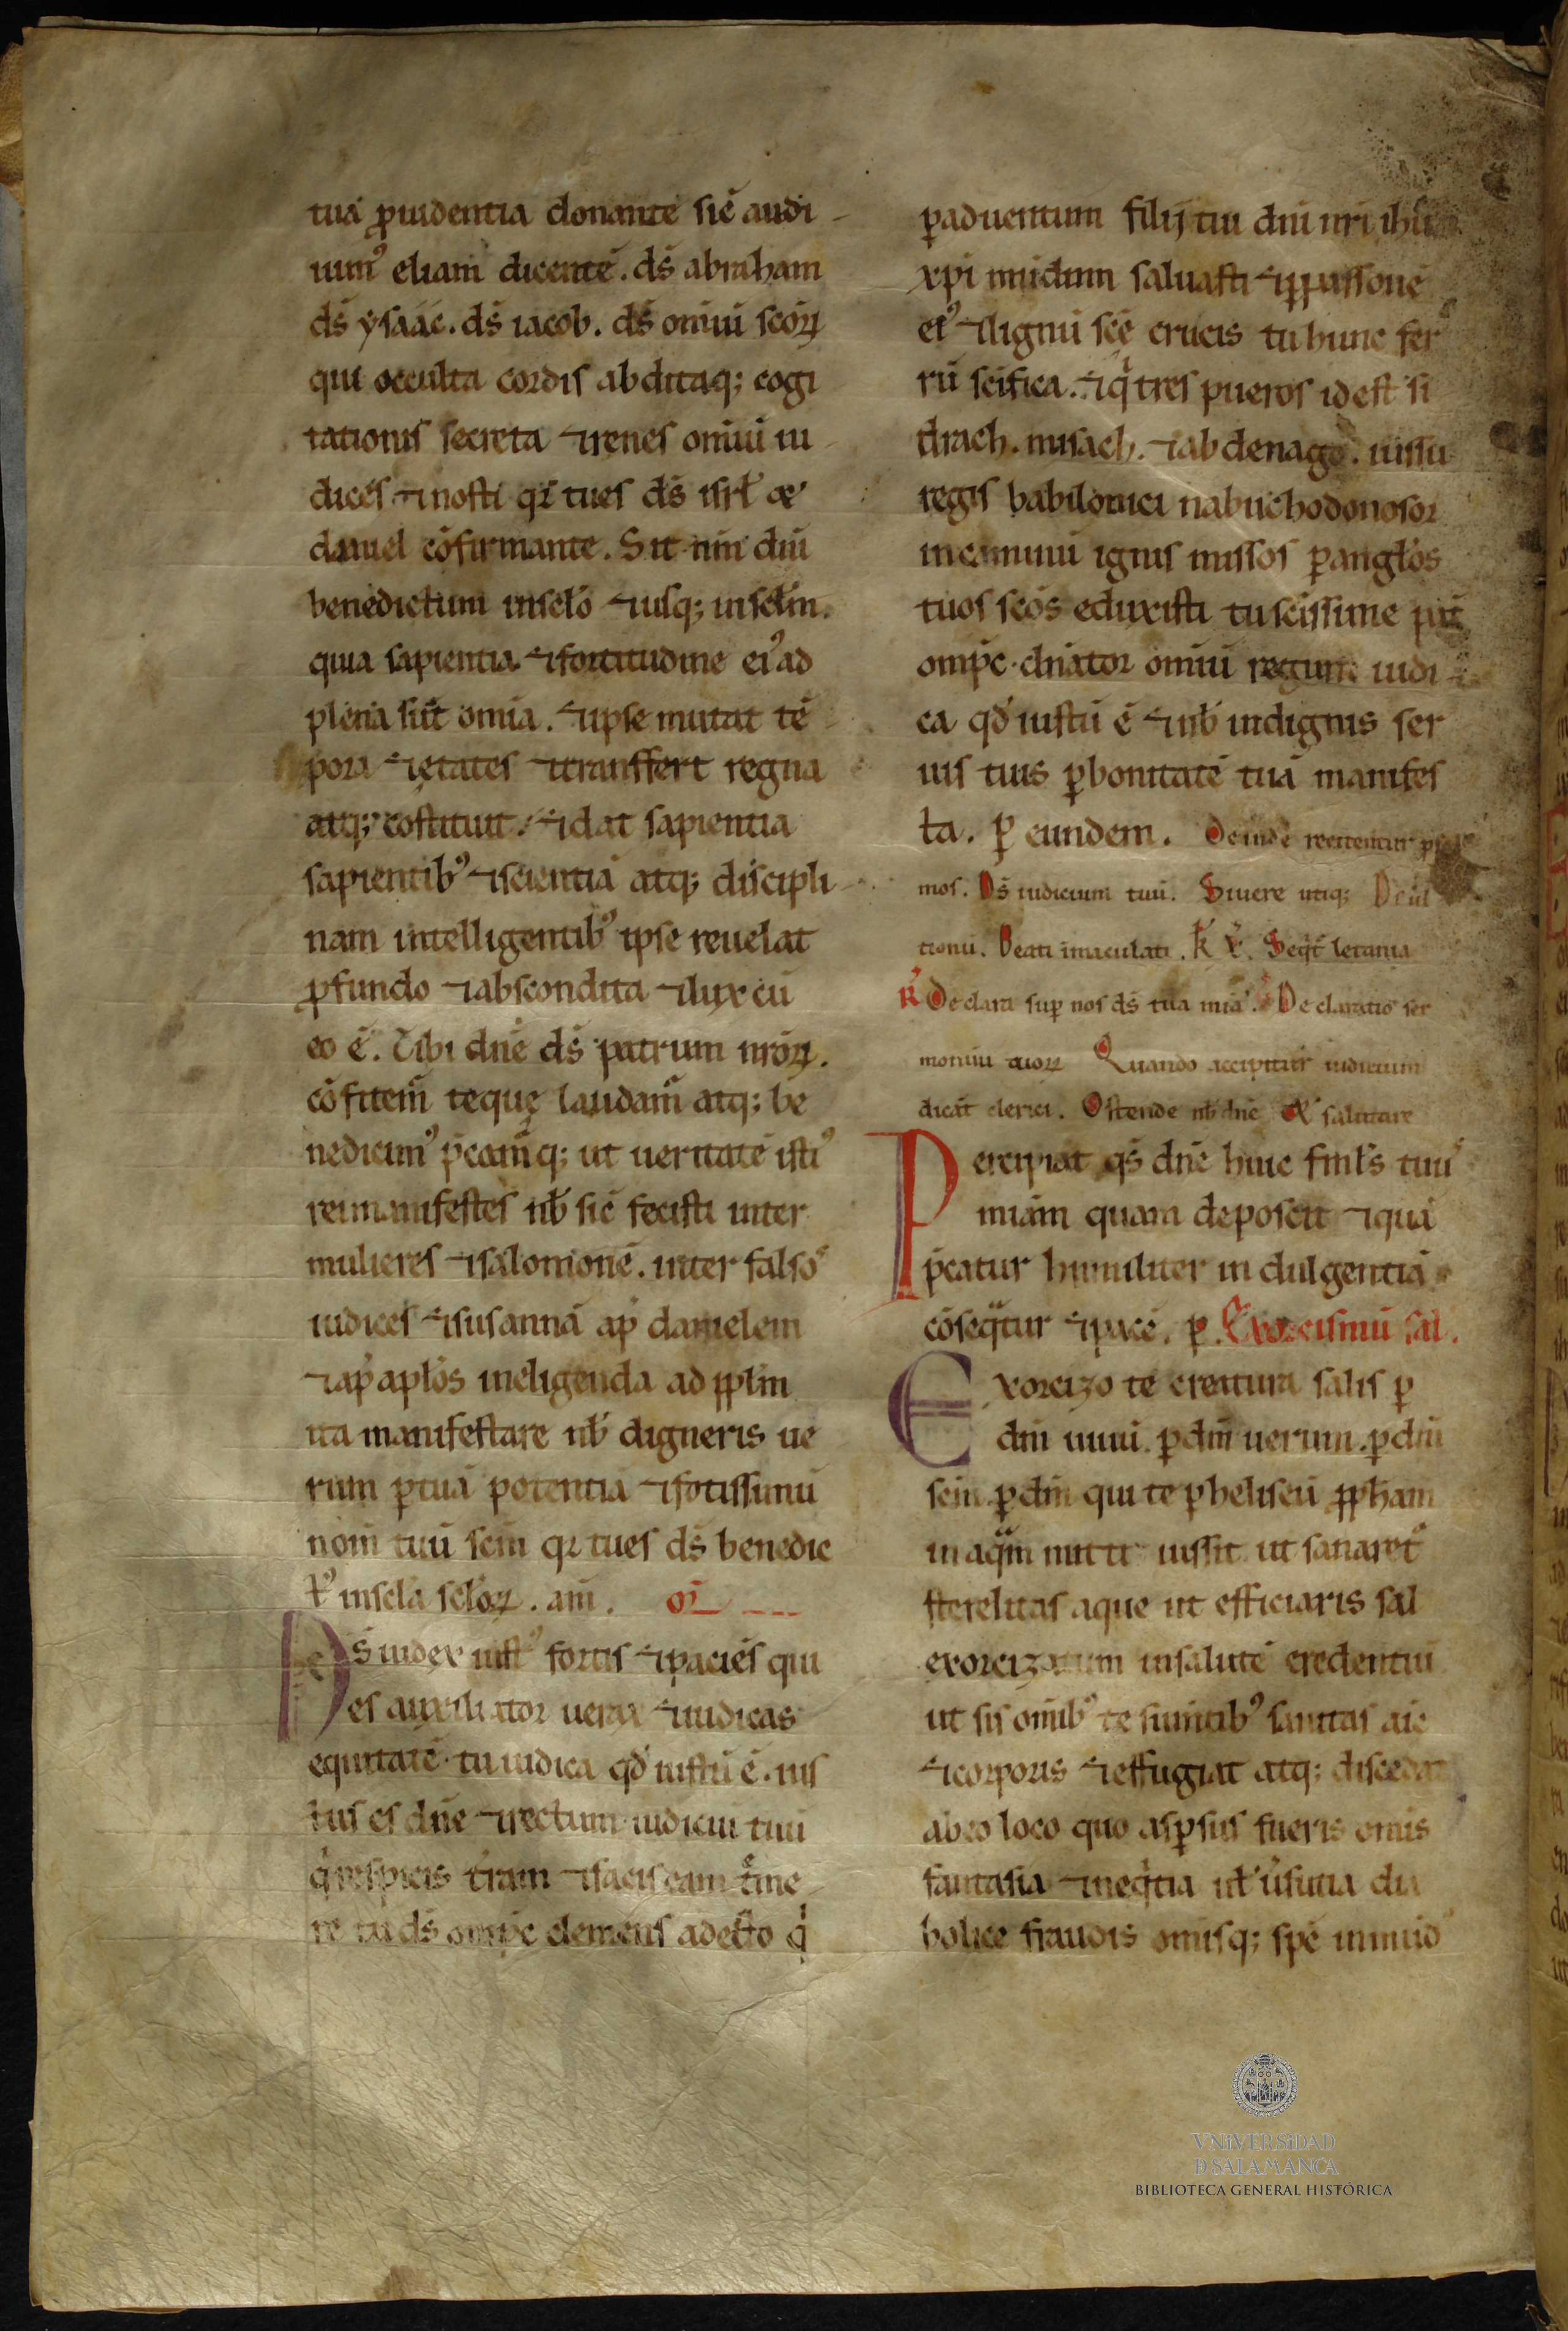 tuā ꝓuidentia donante sic̄ audi-
uimꝰ eliam dicentē. ds̄ abraham
ds̄ ysaác. ds̄ iacob. ds̄ om̄iū sc̄oꝝ
qui occulta cordis abditaq; cogi
tationis secreta ⁊ renes om̄iū iu
dicēs ⁊ nosti qr̄ tu es ds̄ isrł
daniel cōfirmante. Sit nm̄ dn̄i
benedictum in sclo ⁊ usq; in sclm̄.
quia sapientia ⁊ fortitudine eiꝰ ad
plena sūt om̄ia. ⁊ ipse mutat tē
pora ⁊ ętates ⁊ transffert regna
atq; cōstituit. ⁊ dat sapientia
sapientibꝰ ⁊ scientiā atq; discipli-
nam intelligentibꝰ ipse reuelat
ꝓfundo ⁊ abscondita ⁊ lux cū
eo ē. Tibi dn̄e ds̄ patrum nr̄oꝝ.
cōfitem̄ teque laudam̄ atq; be
nedicimꝰ p̄cam̄q; ut ueritatē istiꝰ
rei manifestes nb̄ sic̄ fecisti inter
mulieres ⁊ salomonē. inter falsos
iudices ⁊ susannā ap̄ danielem
⁊ ap̄ aplos in eligenda ad pplm̄
ita manifestare nb̄ digneris ue
rum ꝑ tuā potentiā ⁊ fotissimū
nom̄ tuū scm̄ qr̄ tu es ds̄ benedic
tꝰ in scla scloꝝ. am̄. or̄
Ds̄ iudex iustꝰ fortis ⁊ paciēs qui
es auxiliator uerax ⁊ iudicas
equitatē tu iudica qd̄ iustū ē. ius
tus es dn̄e ⁊ rectum iudiciū tuū
q̄ respicis t̄ram ⁊ facis eam t̄me
re tu ds̄ omp̄c clemens adesto q̄
ꝑ aduentum filij tui dn̄i nr̄i ihū
xp̄i mūdum saluasti ⁊ ꝑ passionē
eiꝰ ⁊ lignū sc̄ę crucis tu hunc fer
rū scifica. ⁊ q̄ tres pueros id est si
drach. misach. ⁊ abdenago. iussu
regis babilonici nabuchodonosor
in caminū ignis missos ꝑ anglos
tuos sc̄os eduxisti tu scissime pat̄
omp̄c dn̄ator om̄iū regum iudi-
ca qd̄ iustū ē ⁊ nb̄ indignis ser
uis tuis ꝑ bonitatē tuā manifes
ta. ꝑ eundem. Deinde recitentur
mos. Ds̄ iudicium tuū. Si uere utiq; Ds̄ ul
tionū. Beati īmaculati. k̄ Seq̄t̄ letania
R̄ Declara sup̄ nos ds̄ tua mia. Declaratio ser
monum tuoꝝ Quando accipitur iudicium
dicāt clerici. Ostende nb̄ dn̄e salutare
Percipiat qs̄ dn̄e huic fmls̄ tuus
miam quam deposcit ⁊ quā
p̄catur humiliter indulgentiā
cōseq̄tur ⁊ pacē. ꝑ. Exorcismū sal.
Exorcizo te creatura salis ꝑ
dm̄ uiuū. ꝑ dm̄ uerum. ꝑ dm̄
scm̄ ꝑ dm̄ qui te ꝑ heliseū ꝓpham
in aq̄m mitti iussit ut sanaret̄
sterelitas aque ut efficiaris sal
exorcizatum in salutē credentiū
ut sis om̄ibꝰ te sumtibꝰ sanitas aīe
⁊ corporis ⁊ effugiat atq; discedat
ab eo loco quo aspersus fueris om̄is
fantasia ⁊ neq̄tia uł ūsutia dia
bolice fraudis om̄isq; spē inmūdꝰ
VNiVERSiDAD
D SALAMANCA
BIBLIOTECA GENERAL HISTÓRICA